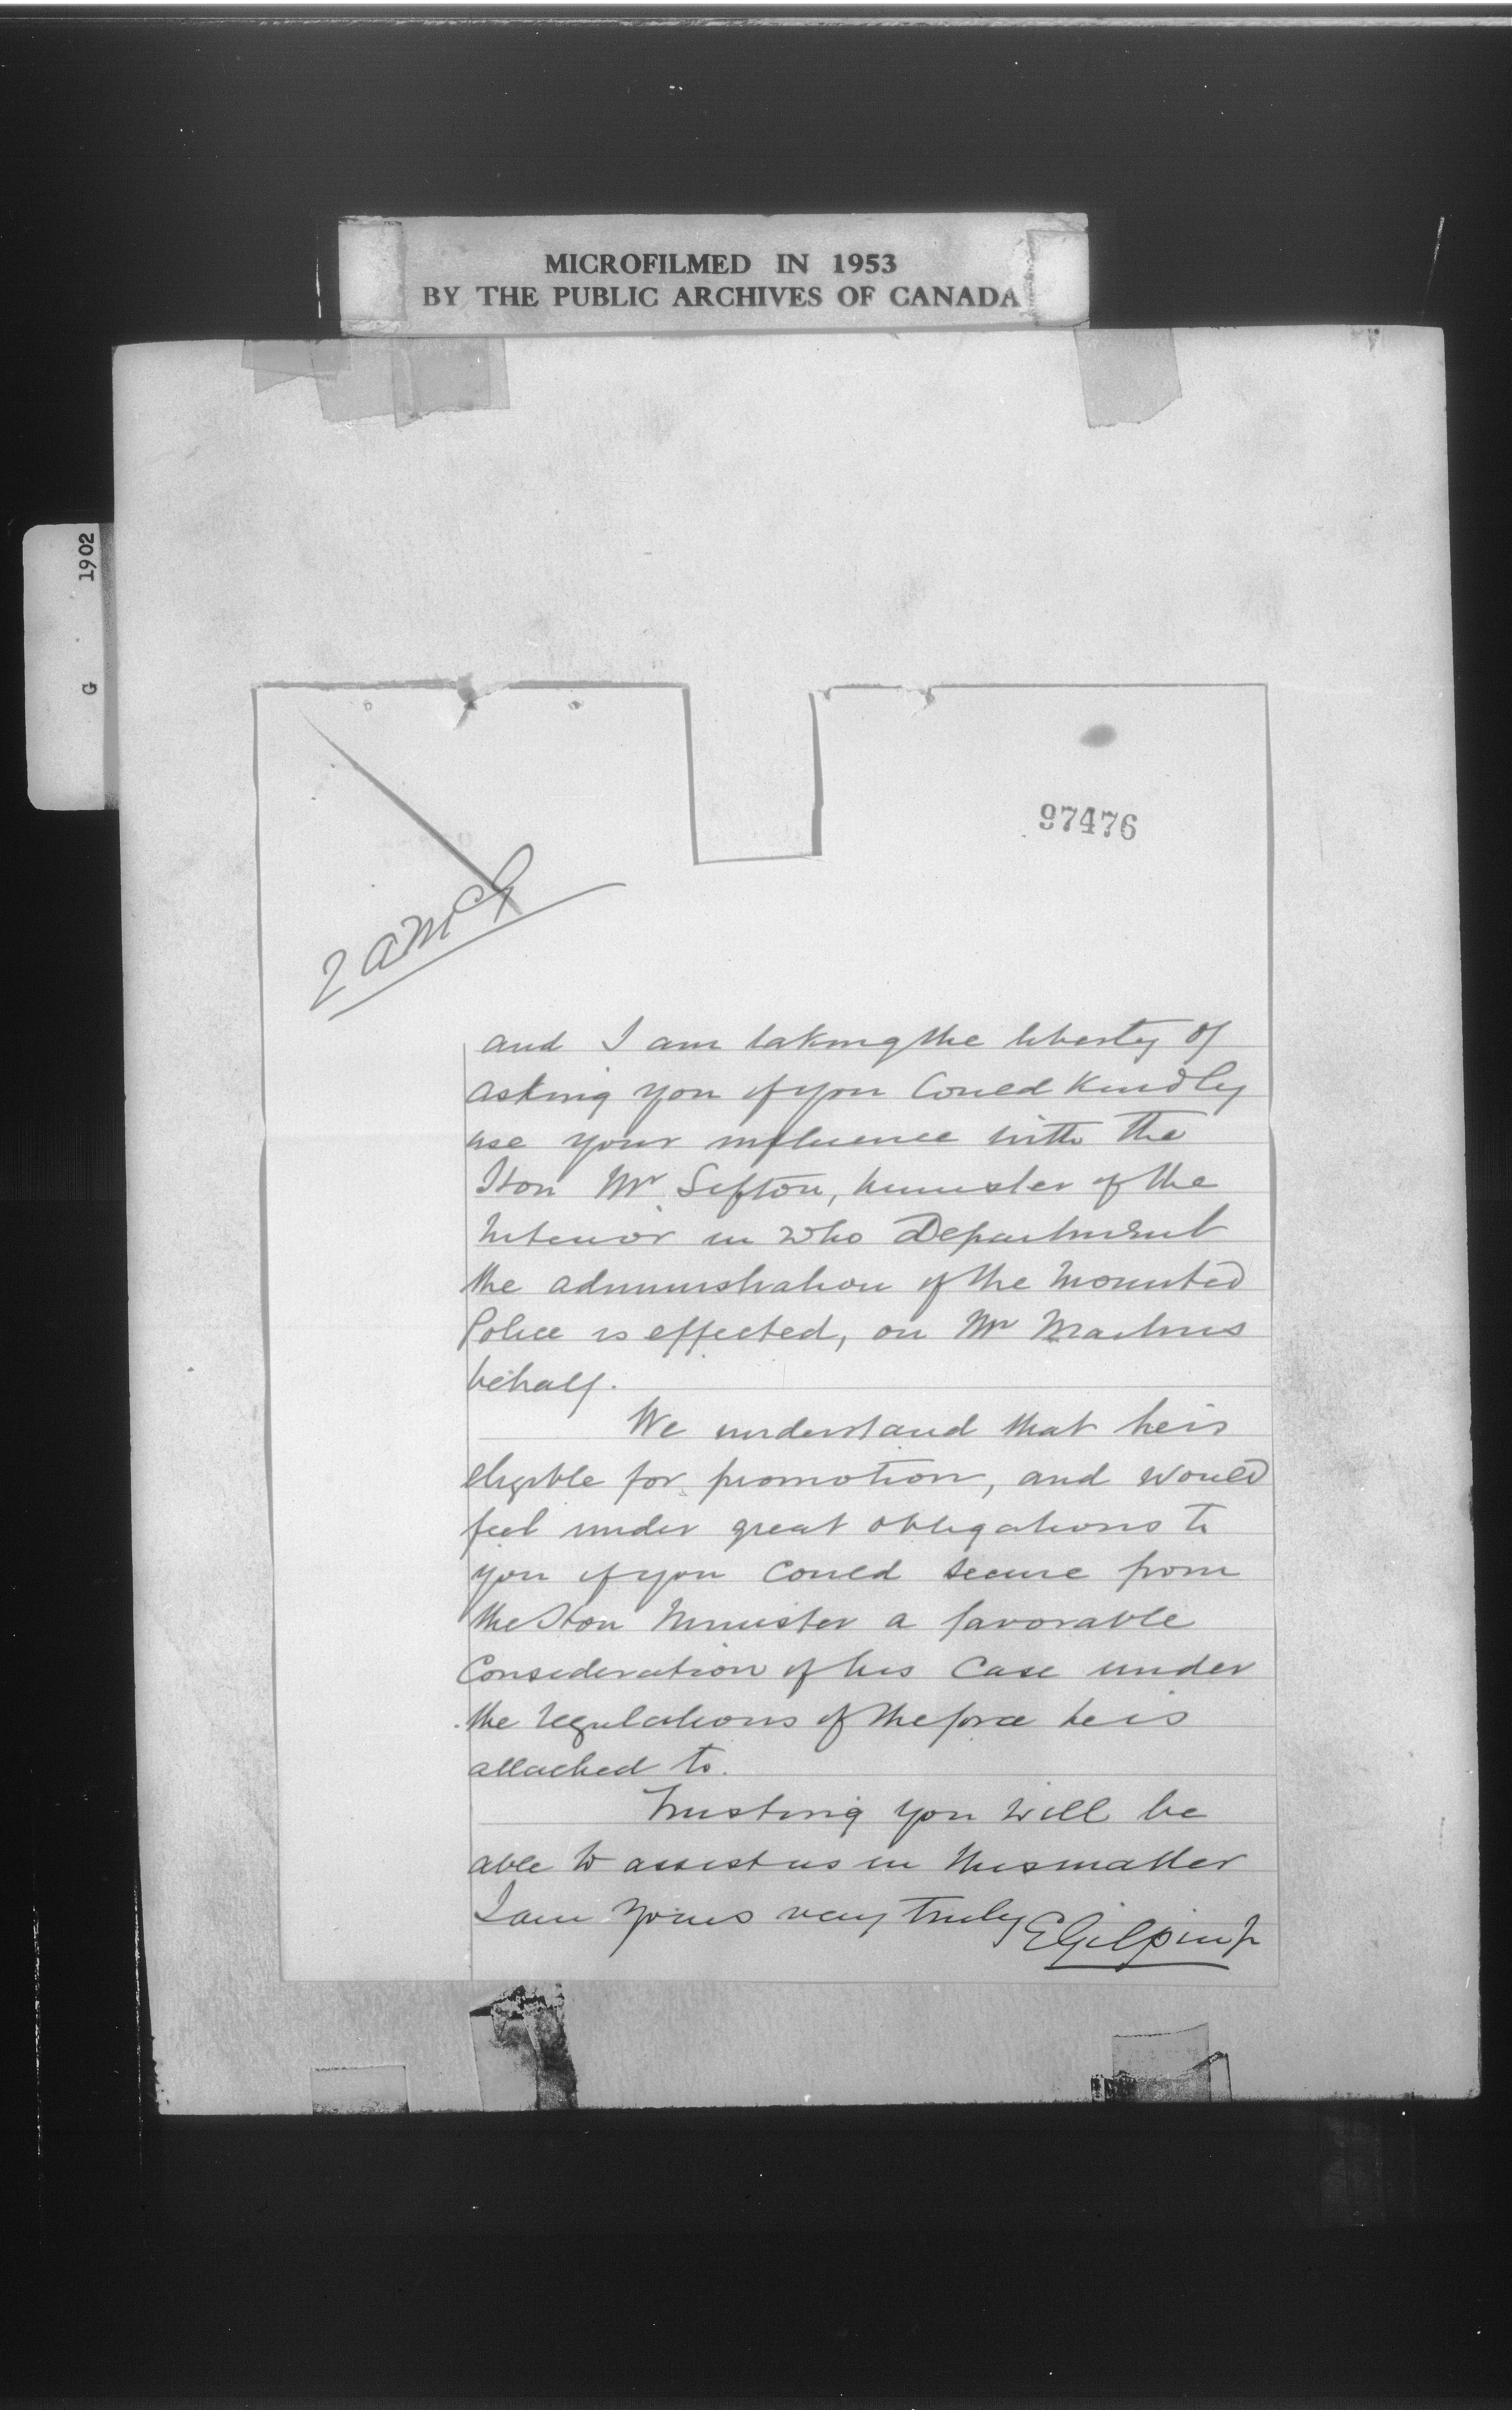 MICROFILMED IN 1953
BY THE PUBLIC ARCHIVES OF CANADA
1902
G
97476
and I am taking the liberty of
asking you if you could kindly
use your influence with the
Hon Mr Sifton, Minister of the
Interior in who Department
the administration of the Mounted
Police is effected, on Mr Machins
behalf.
We understand that he is
eligible for promotion, and would
feel under great obligations to
you if you could secure from
the Hon Minister a favorable
consideration of his case under
the regulations of the force he is
attached to.
Trusting you will be
able to assist us in this matter
I am yours very truly E Gilpin Jr